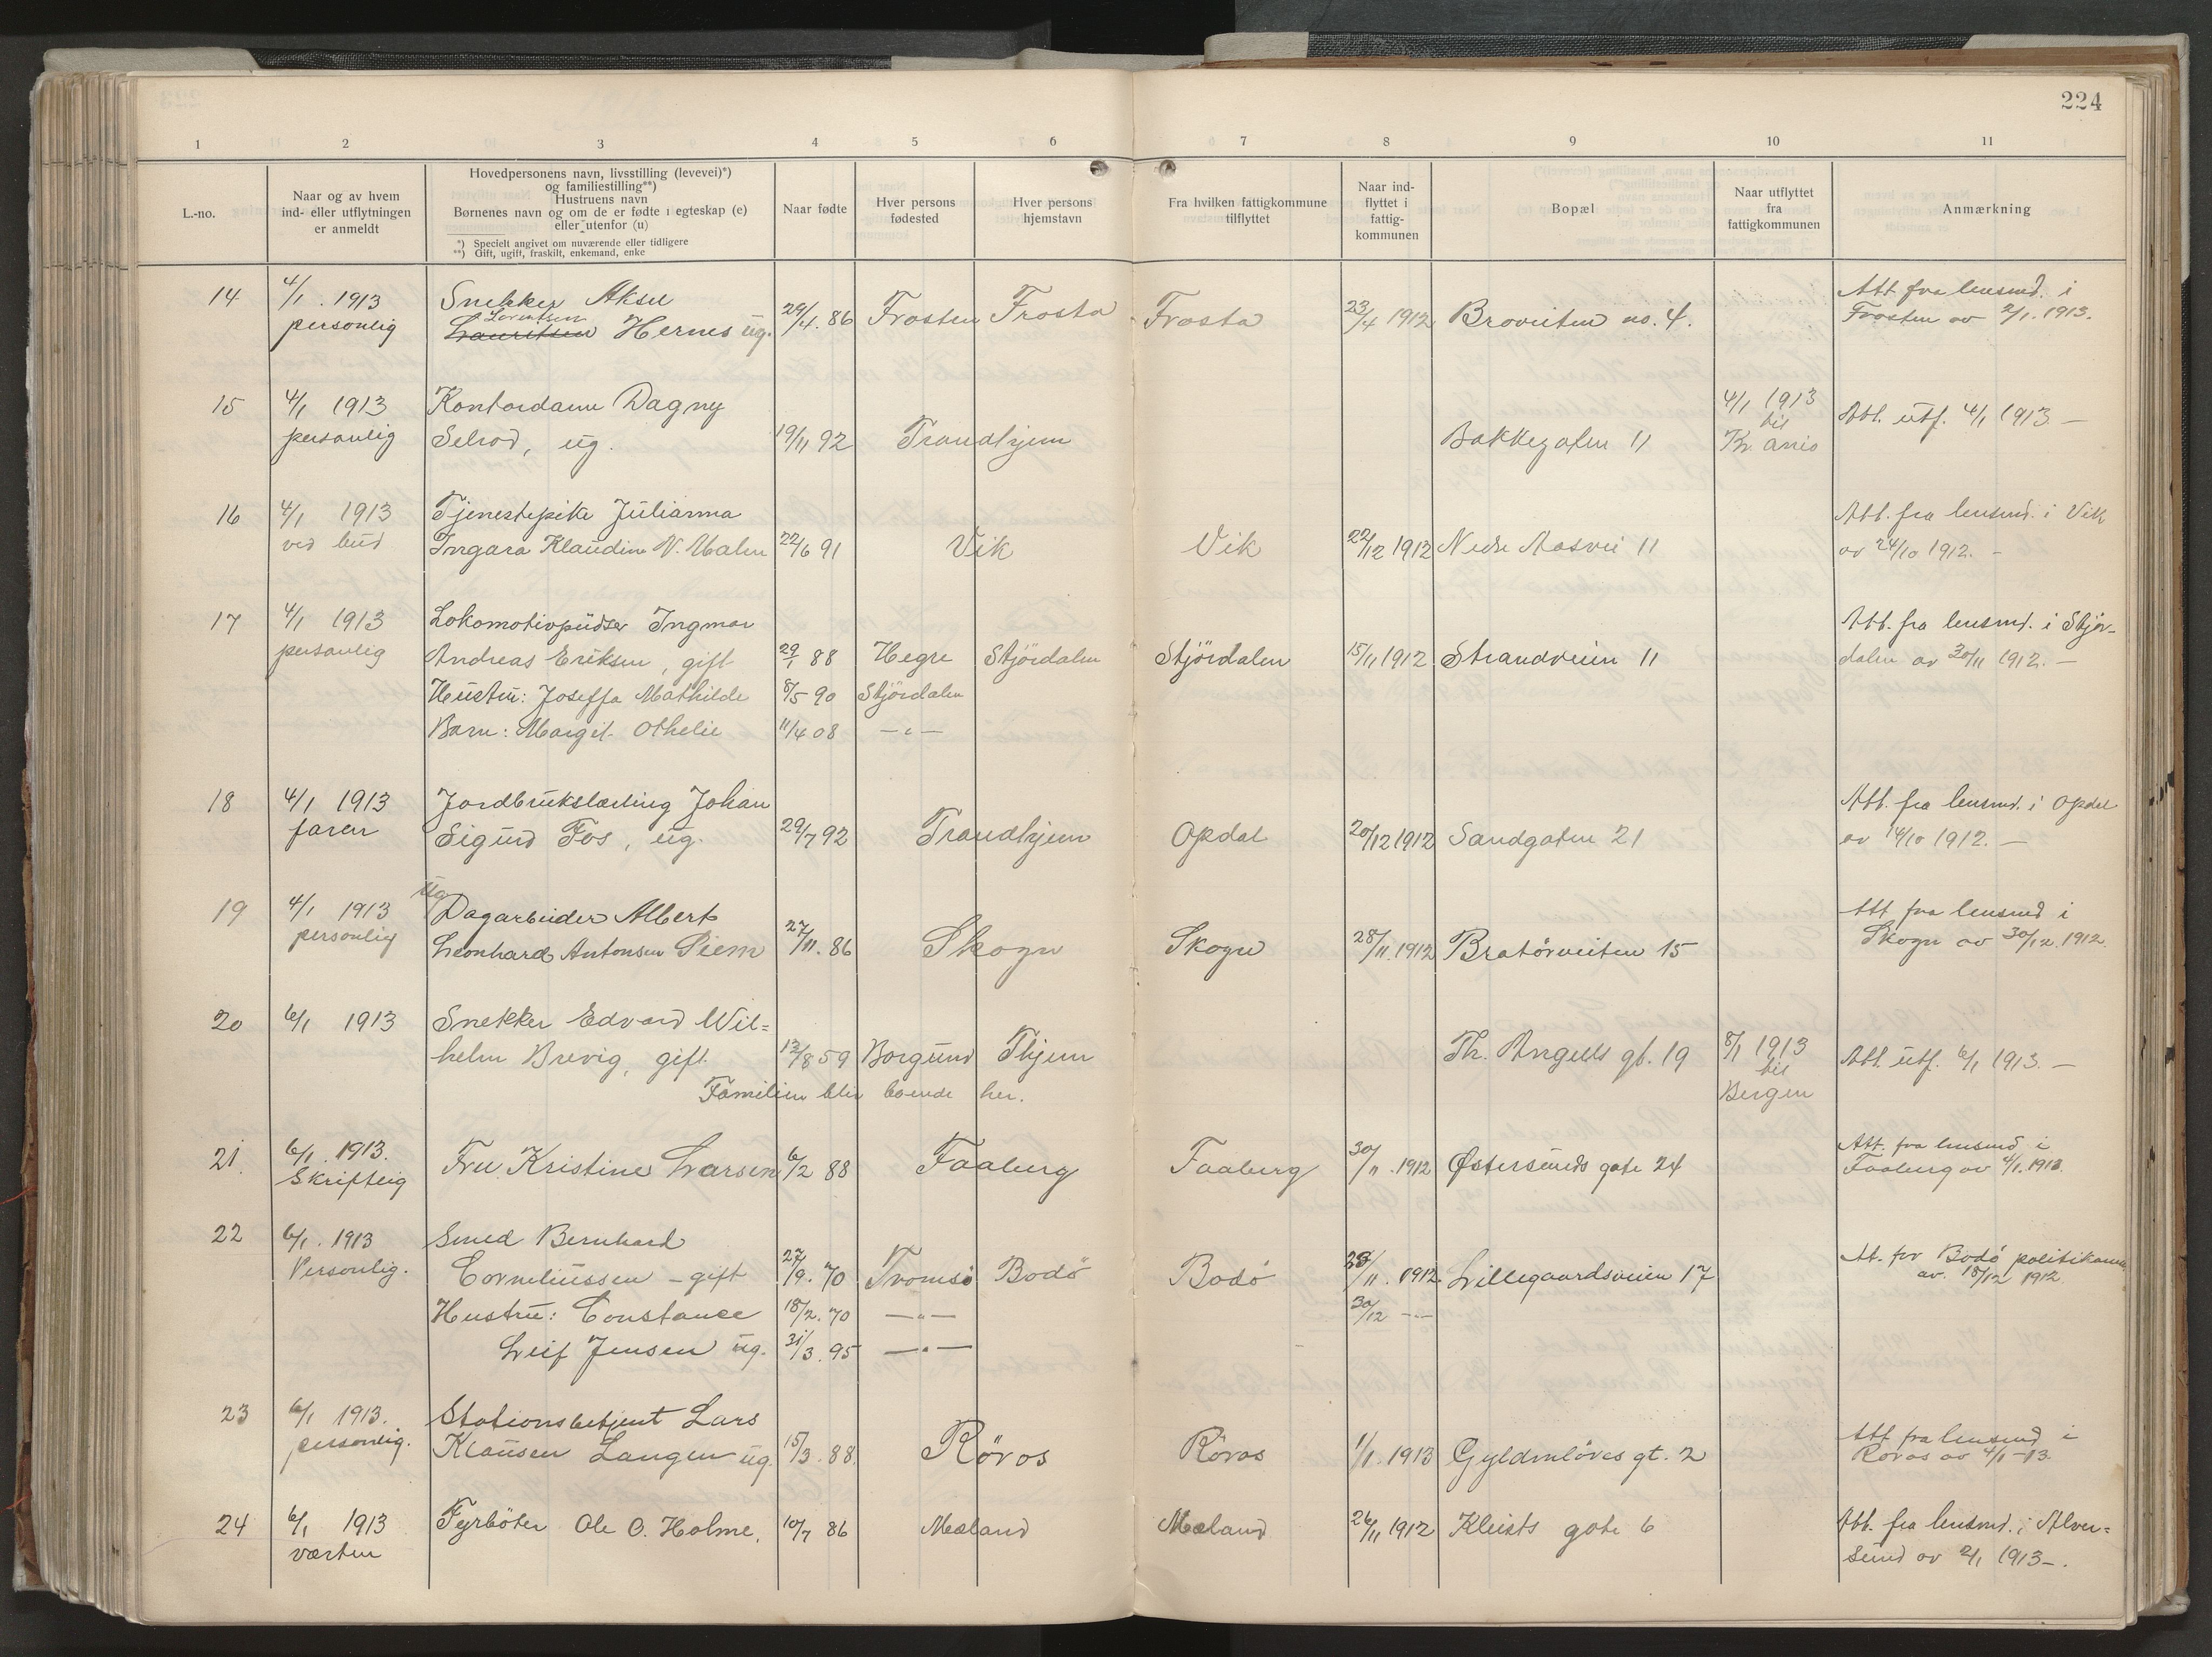 224
1 2 3 4 5 6 7 8 9 10 11
L.-no.
Naar og av hvem
ind- eller utflytningen
er anmeldt
Hovedpersonens navn, livsstilling (levevei)*)
og familiestilling**)
Hustruens navn
Børnenes navn og om de er fødte i egteskap (e)
eller utenfor (u)
*) Specielt angivet om nuværende eller tidligere
**) Gift, ugift, fraskilt, enkemand, enke
Naar fødte
Hver persons
fødested
Hver persons
hjemstavn
Fra hvilken fattigkommune
tilflyttet
Naar ind-
flyttet i
fattig-
kommunen
Bopæl
Naar utflyttet
fra
fattigkommunen
Anmærkning
14 4/1. 1913 Snekker Aksel Att. fra lensmd. i
personlig Lorentsen
Lauritsen Hernes ug. 29/4. 86 Frosten Frosta Frosta 23/4 1912 Broveiten no. 4. Frosten av 2/1. 1913.
15 4/1 1913 Kontordame Dagny 4/1 1913
personlig Selrod, ug. 19/11 92 Trondhjem Bakkegaten 11 til Kr.ania Att. utf. 4/1 1913 —
16 4/1 1913 Tjenestepike Julianna Att. fra lensmd. i Vik
ved bud Ingara Klaudine N. Malm 22/6 91 Vik Vik 22/12 1912 Nedre Aasvei 11 av 24/10 1912. -
17 4/1 1913 Lokomotivpudser Ingmar Att. fra lensmd. i Stjør-
personlig Andreas Eriksen, gift 29/1 88 Hegre Stjördalen Stjördalen 15/11 1912 Strandveien 11 dalen av 30/11 1912. —
Hustru: Joseffa Mathilde 8/5 90 Stjördalen
Barn: Margit Othelie 11/4 08 — " —
18 4/1 1913 Jordbrukslærling Johan Att. fra lensmd. i Opdal
faren Sigurd Fos, ug. 29/7 92 Trondhjem Opdal 20/12 1912 Sandgaten 21 av 14/10 1912. —
ug
19 4/1 1913 Dagarbeider Albert Att fra lensmd i
personlig Leonhard Antonsen Siem 27/11. 86 Skogn Skogn 28/11. 1912 Bratørveiten 15 Skogn av 30/12. 1912.
20 6/1 1913 Snekker Edvard Wil=
helm Brevig, gift 13/8 59 Borgund Thjem Th. Angells gt. 19 8/1 1913 til Bergen Att. utf. 6/1 1913. —
Familien blir boende her.
21 6/1. 1913. Att. fra lensmd i
Skriftlig Fru Kristine Larsen 6/2 88 Faaberg Faaberg 30/11. 1912 Østersunds gate 24 Faaberg av 4/1. 1913.
22 6/1. 1913 Smed Bernhard
Personlig. Corneliussen - gift 27/9. 70 Tromsö Bodö Bodö 28/11. 1912 Lillegaardsveien 17 At. fra Bodö politikam.
av. 18/12 1912.
Hustru: Constance 18/2. 70 — " — 30/12 — " —
Leif Jensen ug. 31/3. 95 — " —
23 6/1 1913. Stationsbetjent Lars Att fra lensmd i
personlig. Klausen Langen ug. 15/3. 88. Röros Röros 1/1. 1913 Gyldenlöves gt. 2 Röros av 4/1-13.
24 6/1 1913 Fyrböter Ole O. Holme. 10/7 86 Mæland Mæland 26/11 1912 Kleists gate 6 Att. fra lensmd. i Alver=
verten sund av 2/1 1913 -.